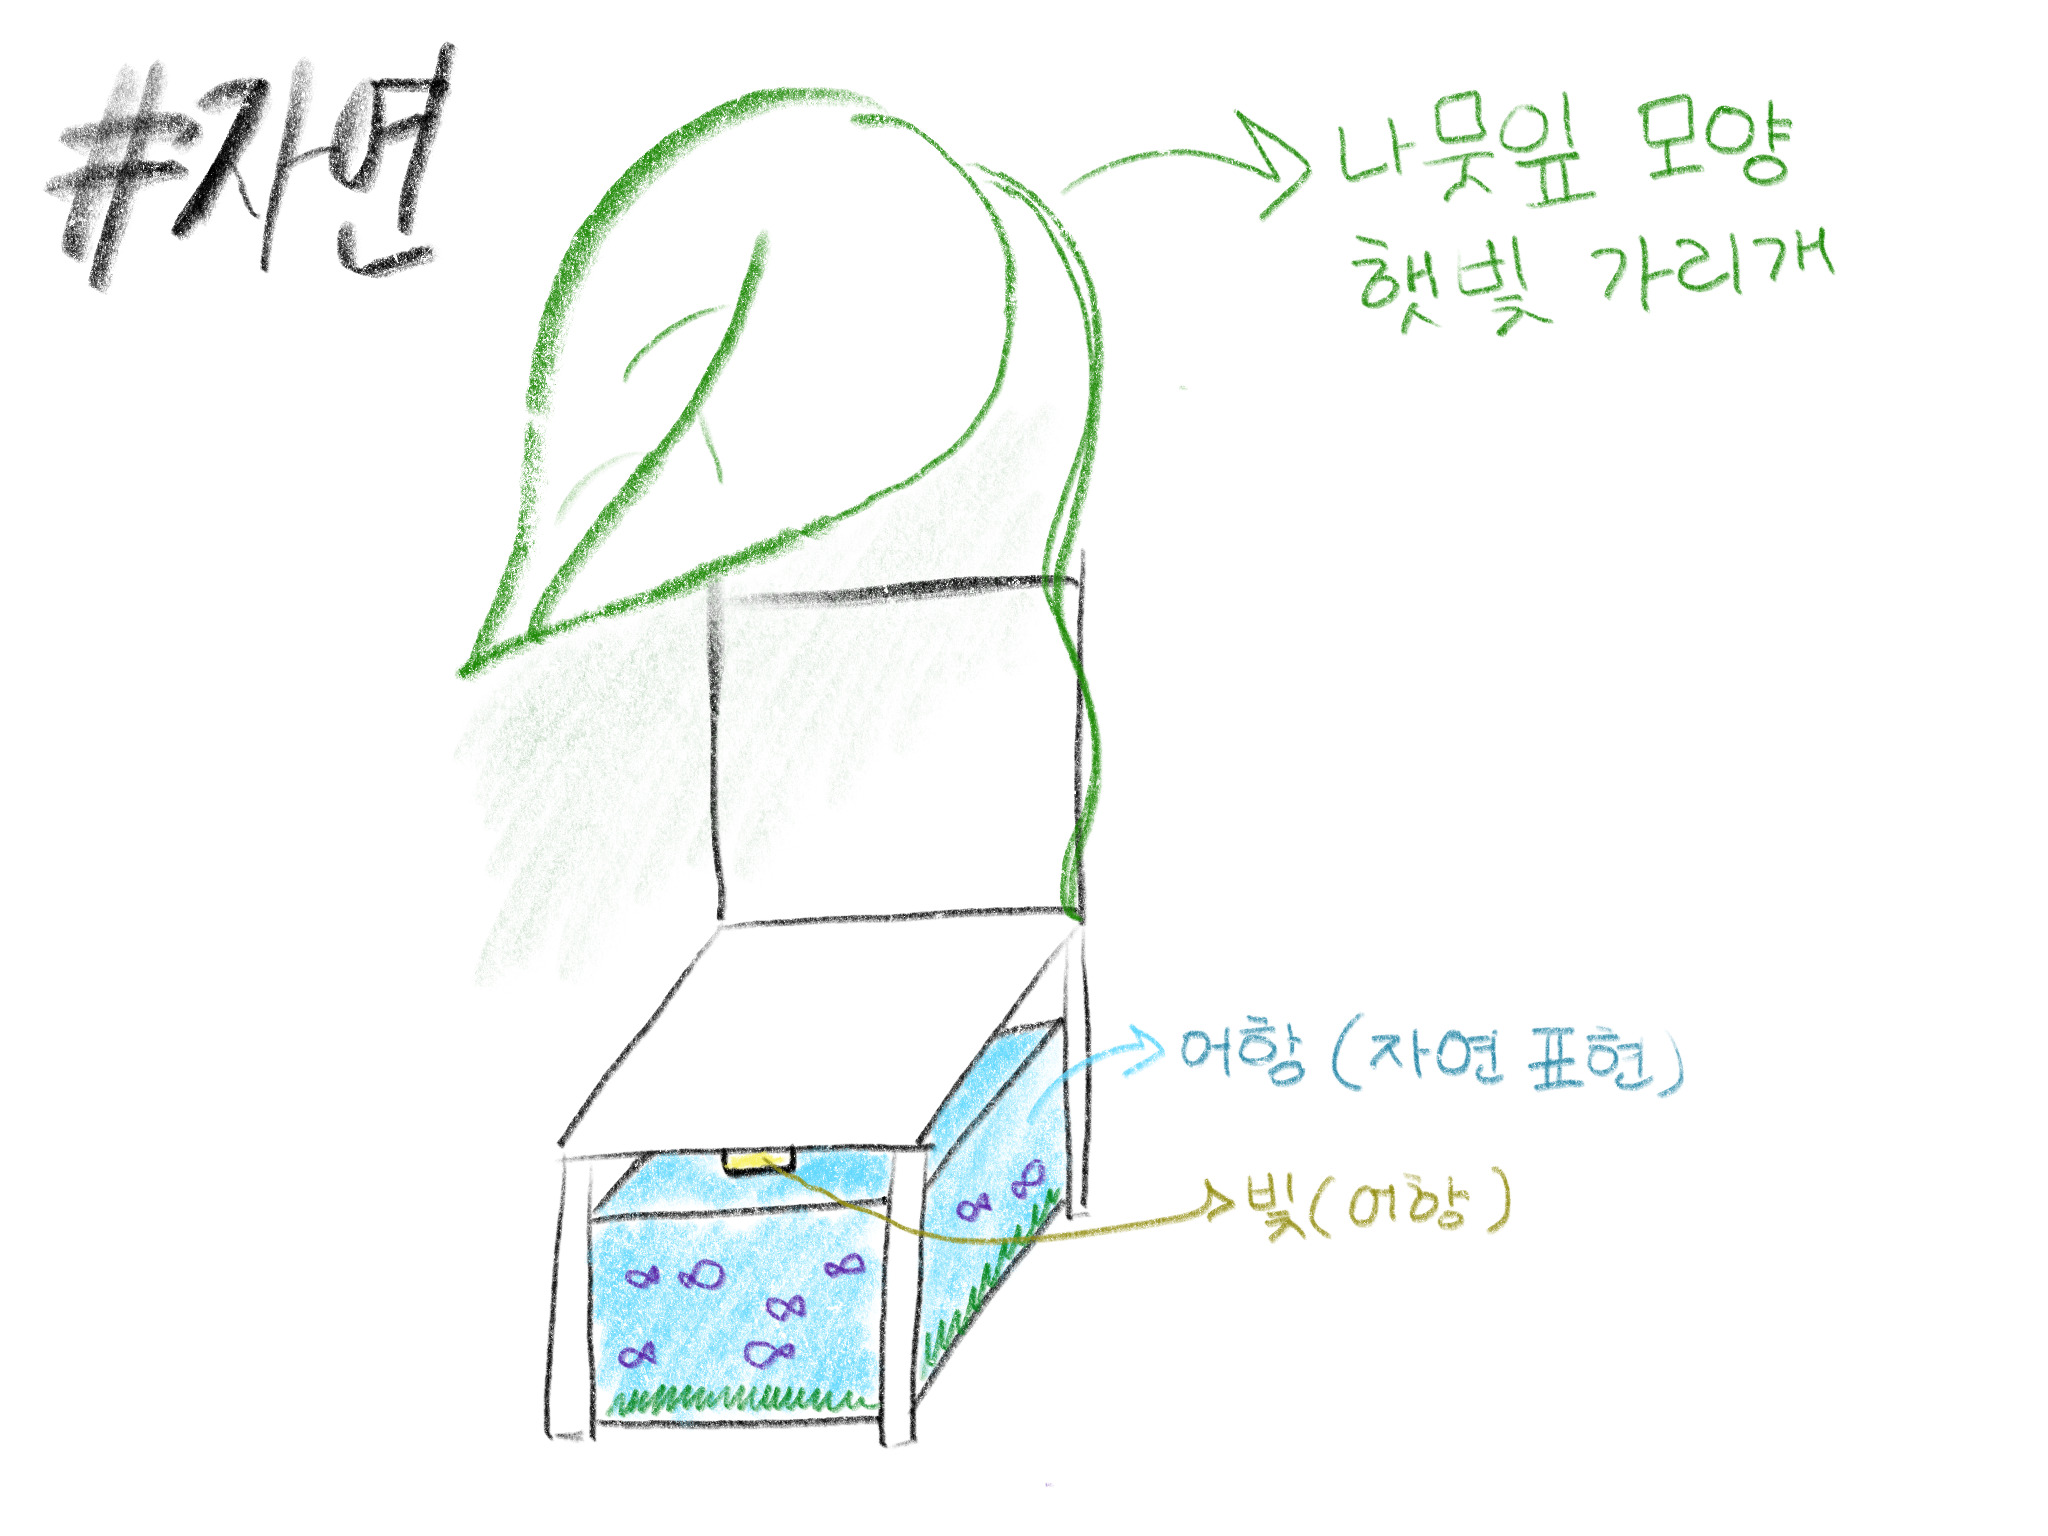 #자연
나뭇잎 모양
햇빛 가리개
어항 (자연 표현)
빛(어항)